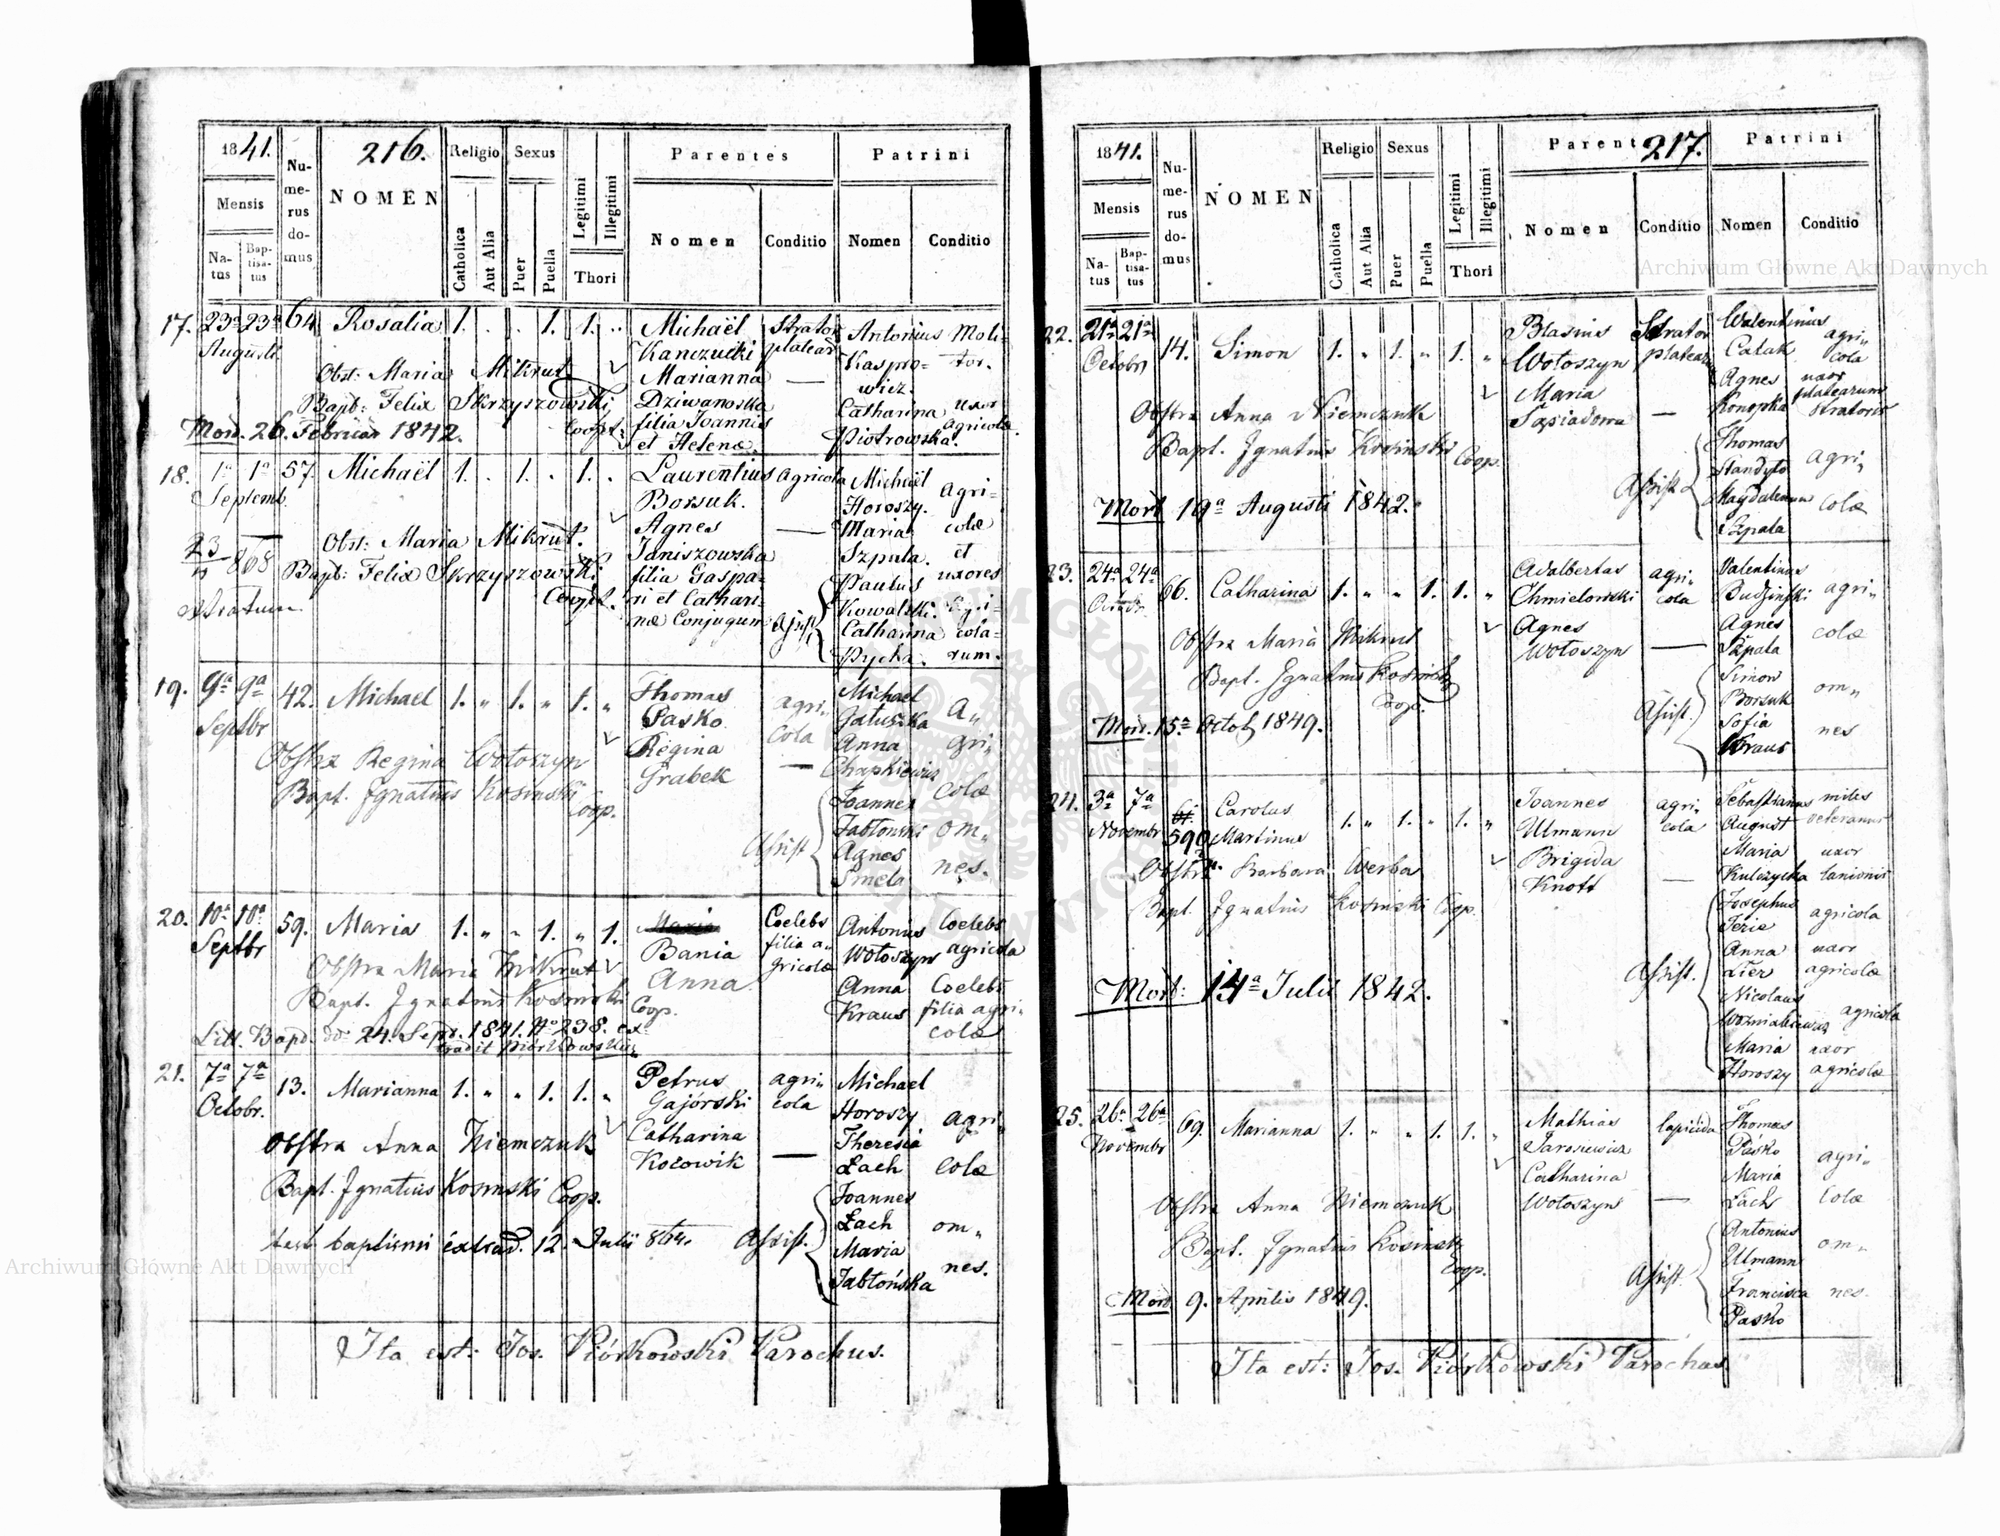 1841.
216.
Numerus domus
NOMEN
Religio
Sexus
Parentes
Patrini
Mensis
Natus
Baptisatus
Catholica
Aut Alia
Puer
Puella
Legitimi
Illegitimi
Thori
Nomen
Conditio
Nomen
Conditio
17. 23a 23a 64 Rosalia 1. . . 1. 1. ..
Augusti
Michaël Strator Antonius Moli-
Kanczucki platear Kaspro- tor.
Marianna — wicz.
Dziwanoska Catharina uxor
filia Joannis Piotrowska. agricolæ.
et Helenæ.
Obst: Maria Mikrut
Bapt: Felix Skrzyszowski
Coopt:
Mort. 26. Februar 1842.
18. 1a 1a 57. Michaël 1. . 1. . 1. .
Septemb.
Laurentius agricola Michaël
Borsuk. Horoszy. agri-
Agnes — Maria colæ
Janiszowska Szpala. et
filia Gaspa- Paulus uxores
ri et Cathari- Kowalski. agri-
næ Conjugum Assist Catharina cola-
Pycha. rum.
Obst: Maria Mikrut.
Bapt: Felix Skrzyszowski
Coopt.
868
19. 9a 9a 42. Michael 1. „ 1. „ 1. „
Septbr
Thomas agri„ Michael
Pasko cola Gałuszka a„
Regina — Anna gri„
Grabek Chapkiewicz colæ
Joannes
Jabłonski om„
Assist Agnes
Smela nes.
Obstrx Regina Wołoszyn
Bapt. Ignatius Kosinski
Coop.
20. 10a 10a 59. Maria 1. „ „ 1. „ 1.
Septbr
Maria Coelebs Antonius Coelebs
Bania filia a„ Wołoszyn agricola
Anna gricolæ Anna Coelebs
Kraus filia agri„
colæ
Obstrx Maria Mikrut
Bapt. Ignatius Kosinski Coop.
Litt. Bapt. do 24. Sept. 1841. No 238. ex-
tradit Piórkowski
21. 7a 7a 13. Marianna 1. „ „ 1. 1. „
Octobr.
Petrus agri„ Michael
Gajorski cola Horoszy agri„
Catharina Theresia
Kołowik — Łach colæ
Joannes
Łach om„
Assist. Maria
Jabłońska nes.
Obstrx Anna Niemczuk
Bapt. Ignatius Kosinski Coop.
test baptismi extrad. 12. Julii 864.
Ita est: Jos. Piórkowski Parochus.
1841.
217.
Numerus domus
NOMEN
Religio
Sexus
Parent
Patrini
Mensis
Natus
Baptisatus
Catholica
Aut Alia
Puer
Puella
Legitimi
Illegitimi
Thori
Nomen
Conditio
Nomen
Conditio
22. 21a 21a 14. Simon 1. „ 1. „ 1. „
Octobr
Blasius Strator Walentinus
Wołoszyn platear Całak agri„ cola
Maria Agnes uxor
Sapiadowa — Konopka platearum stratoris
Thomas
Handyło agri„
Assist Magdalena colæ
Szpala
Obstrx Anna Niemczuk
Bapt. Ignatius Kosinski Coop.
Mort 19a Augusti 1842.
23. 24a 24a 66. Catharina 1. „ „ 1. 1. „
Octobr
Adalbertus agri„ Valentinus
Chmielowski cola Budzinski agri„
Agnes Agnes colæ
Wołoszyn — Szpala
Simon
Borsuk om„
Assist. Sofia nes
Kraus
Obstrx Maria Mikrut
Bapt. Ignatius Kosinski
Coop.
Mort. 15a Octob 1849.
24. 3a 7a 590 Carolus
Novembr Martinus 1. „ 1. „ 1. „
Joannes agri„ Sebastianus miles
Ulmann cola August veteranus
Brigida Maria uxor
Knott — Kulczycka lanionis
Josephus agricola
Jezie
Anna uxor
Assist. Lier agricolæ
Nicolaus agricola
Wozniakiewicz
Maria uxor
Horoszy agricolæ
Obstrx Barbara Werba
Bapt. Ignatius Kosinski Coop.
Mort: 14a Julii 1842.
25. 26a 26a 69. Marianna 1. „ „ 1. 1. „
Novembr
Mathias lapicida Thomas
Jarosiewicz Pasko agri„
Catharina Maria
Wołoszyn — Łach colæ
Antonius
Ulmann om„
Assist. Francisca nes.
Pasko
Obstrx Anna Niemczuk
Bapt. Ignatius Kosinski
Coop.
Mort 9. Aprilis 1849.
Ita est: Jos. Piórkowski Parochus
Archiwum Główne Akt Dawnych
Archiwum Główne Akt Dawnych